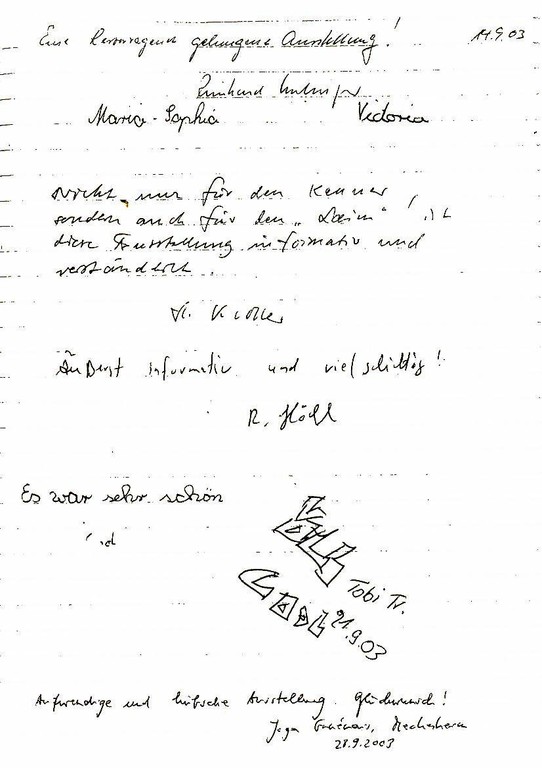 Eine hervorragend gelungene Ausstellung! 14.9.03
Reinhard
Maria-Sophia Victoria
Nicht nur für den Kenner,
sondern auch für den "Laien" ist
diese Ausstellung informativ und
verständlich.
Äußerst informativ und vielschichtig!
R. Höhl
Es war sehr schön
Tobi Tr.
21.9.03
Aufwendige und hübsche Ausstellung. Glückwunsch!
28.9.2003